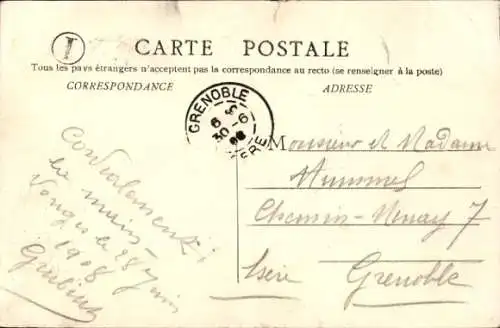 I
CARTE POSTALE
Tous les pays étrangers n'acceptent pas la correspondance au recto (se renseigner à la poste)
CORRESPONDANCE
ADRESSE
GRENOBLE
30-6
08
ISERE
Cordialement
de mains
le 28 Juin
1908
Monsieur et Madame
Hummel
Chemin 7
Isère Grenoble